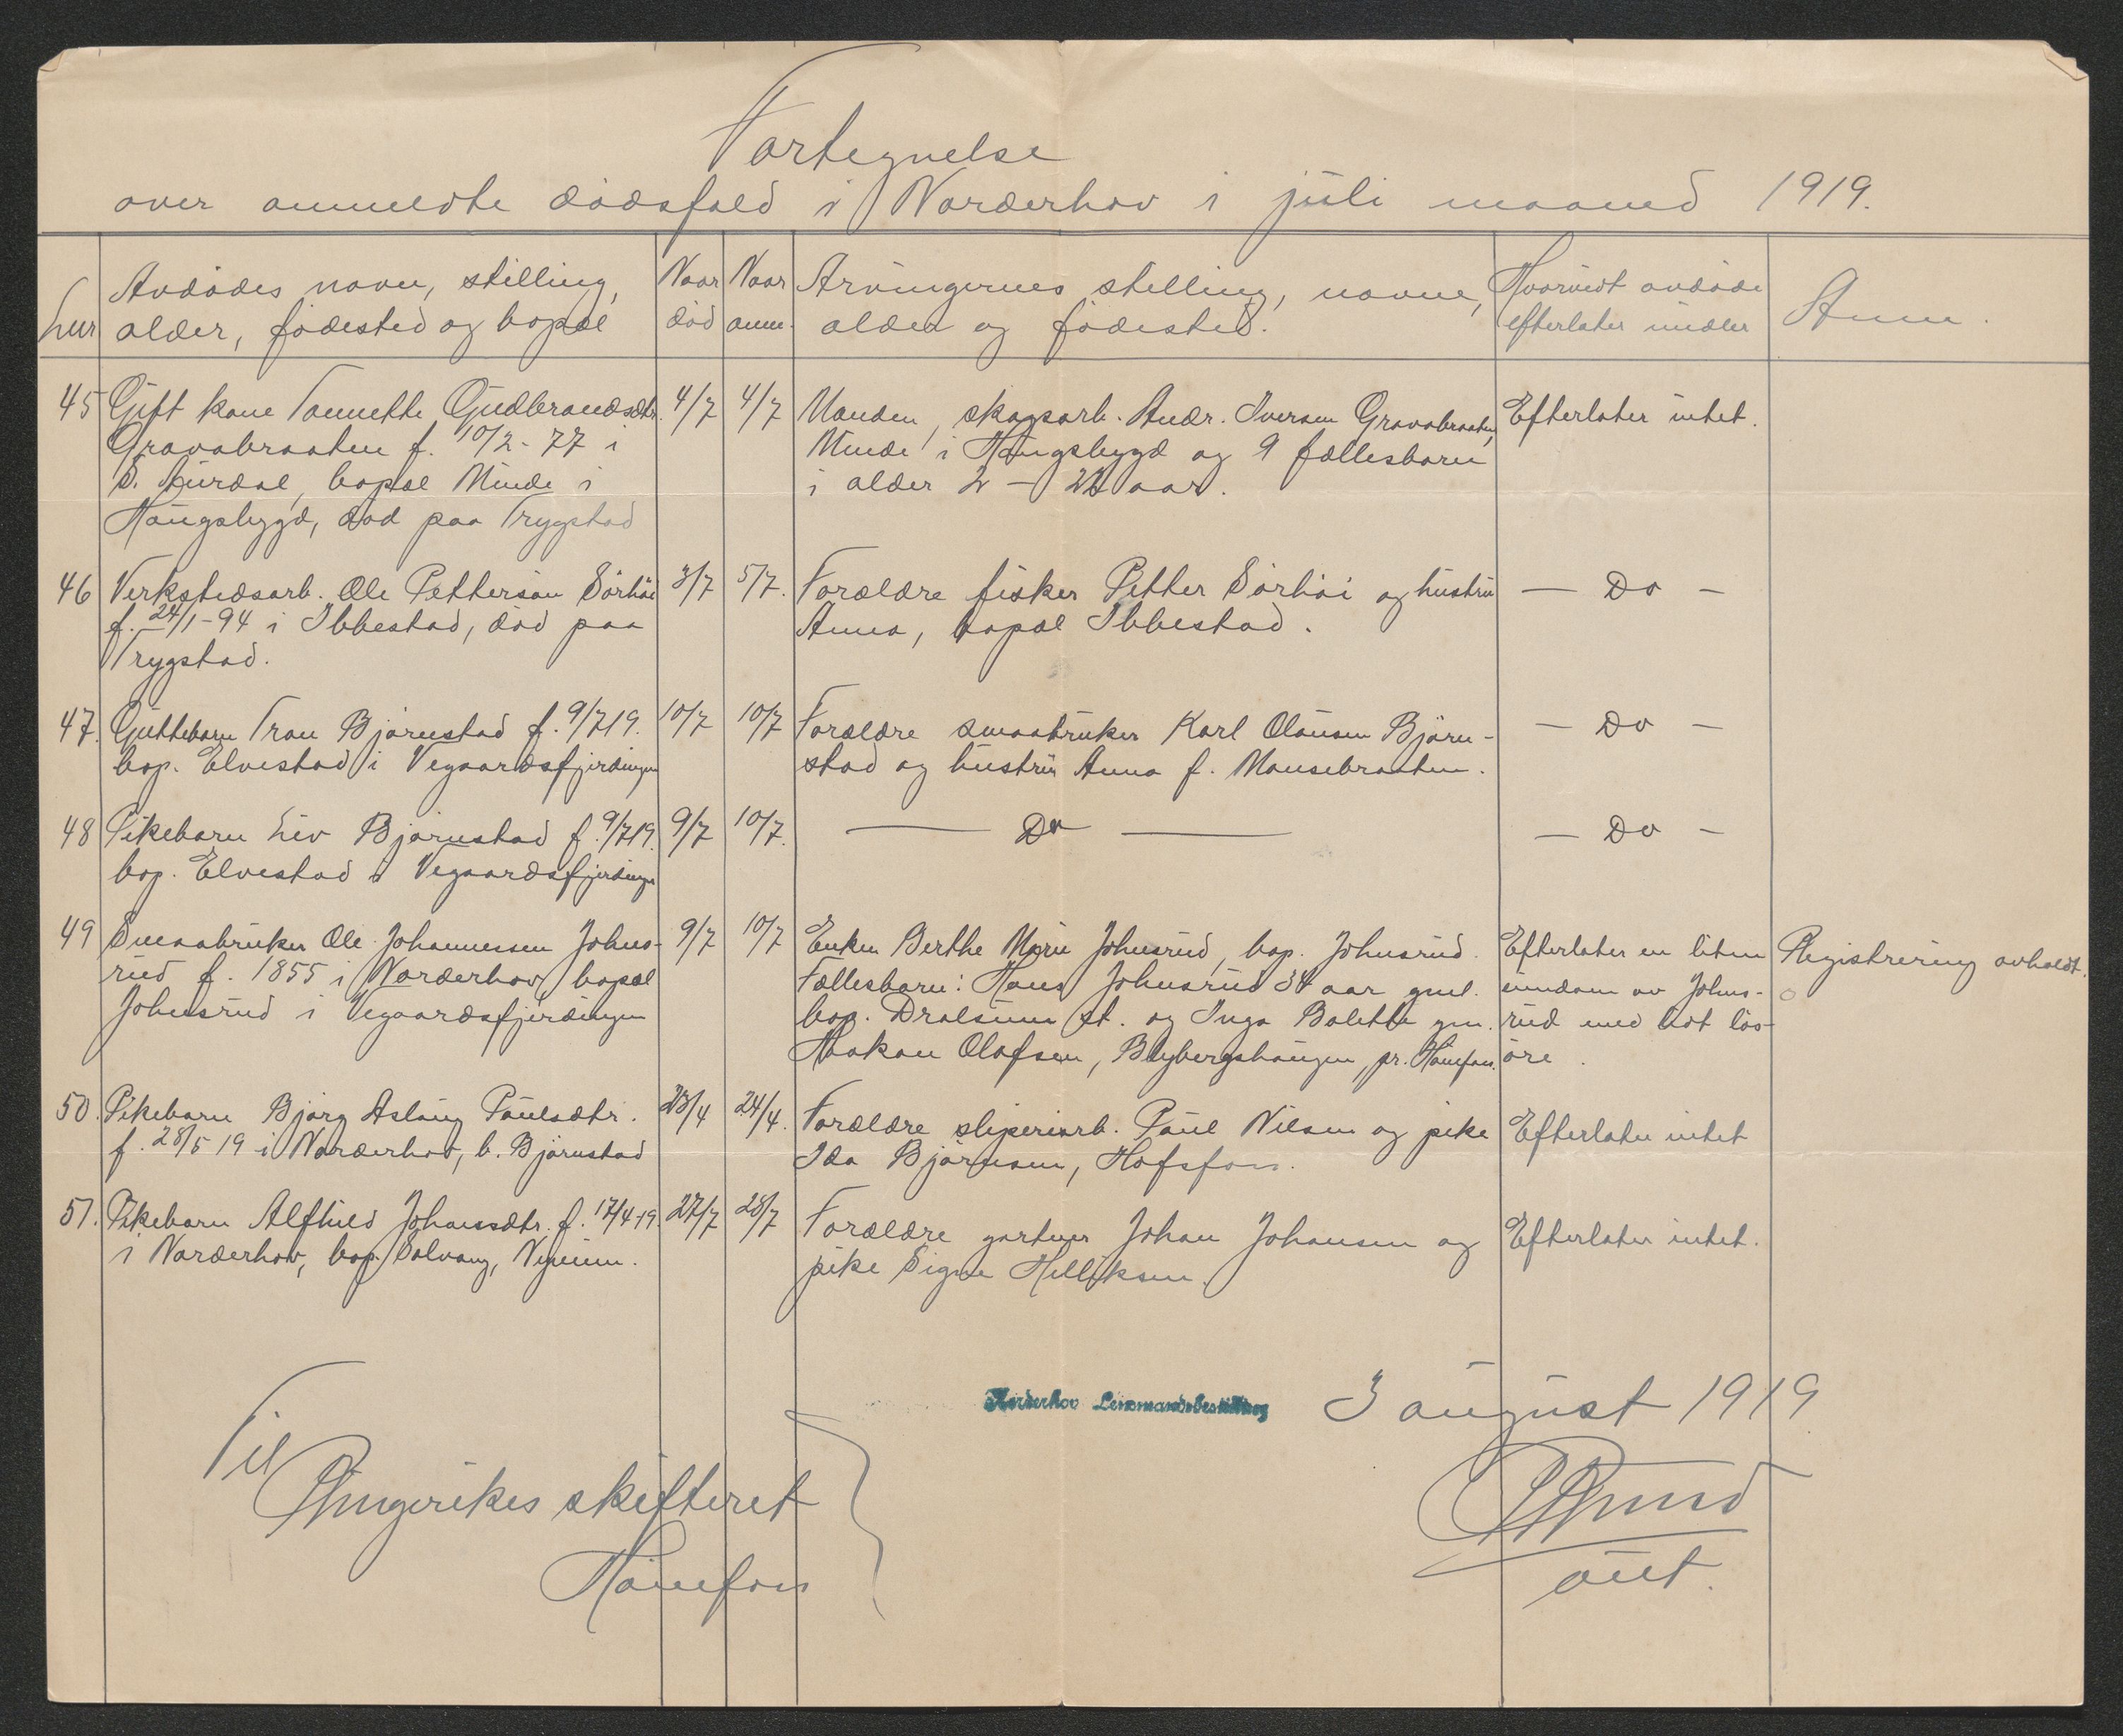 Fortegnelse
over anmeldte dødsfald i Norderhov i juli maaned 1919.
Lnr
Avdødes navn, stilling,
alder, fødested og bopæl
Naar
død
Naar
anm.
Arvingernes stilling, navne,
alder og fødested.
Hvorvidt avdøde
efterlater midler
Anm.
45
Gift kone Tonnette Gudbrandsdtr.
Gravabraaten f. 10/2-77 i
S. Aurdal, bopæl Minde i
Haugsbygd, død paa Trygstad
4/7
4/7
Manden, skogsarb. Andr. Iversen Gravabraaten,
Minde i Haugsbygd og 9 fællesbarn
i alder 2 - 22 aar.
Efterlater intet.
46
Verkstedsarb. Ole Petterson Sørhøi
f. 24/1-94 i Ibbestad, død paa
Trygstad.
3/7
5/7.
Forældre fisker Petter Sørhøi og hustru
Anna, bopæl Ibbestad.
— Do —
47.
Guttebarn Tron Bjørnstad f. 9/7 19.
bop. Elvestad i Vegaardsfjerdingen
10/7
10/7
Forældre smaabruker Karl Olausen Bjørn-
stad og hustru Anna f. Mausebraaten.
— Do —
48
Pikebarn Liv Bjørnstad f. 9/7 19.
bop. Elvestad i Vegaardsfjerdingen
9/7
10/7.
— Do —
— Do —
49
Smaabruker Ole Johannessen Johns-
rud f. 1855 i Norderhov, bopæl
Johnsrud i Vegaardsfjerdingen
9/7
10/7
Enken Berthe Marie Johnsrud, bop. Johnsrud.
Fællesbarn: Hans Johnsrud 34 aar gml.
bop. Dralsum st. og Inga Bolette gm.
Haakon Olafsen, Blybergshaugen, pr. Hønefoss.
Efterlater en liten
eiendom av Johns-
rud med lidt løs-
øre.
Registrering avholdt.
50.
Pikebarn Bjørg Aslaug Paulsdtr.
f. 28/5 19 i Norderhov, b. Bjørnstad
23/4
24/4.
Forældre sliperiarb. Paul Nilsen og pike
Ida Bjørnsen, Hofsfoss.
Efterlater intet
51.
Pikebarn Alfhild Johansdtr. f. 17/4-19.
i Norderhov, bop. Solvang, Vegeim.
27/7
28/7
Forældre gartner Johan Johansen og
pike Signe Helliksen.
Efterlater intet.
Norderhov Lensmandsbestilling
3 august 1919
Til
Ringerikes skifteret
Hønefoss
aut.